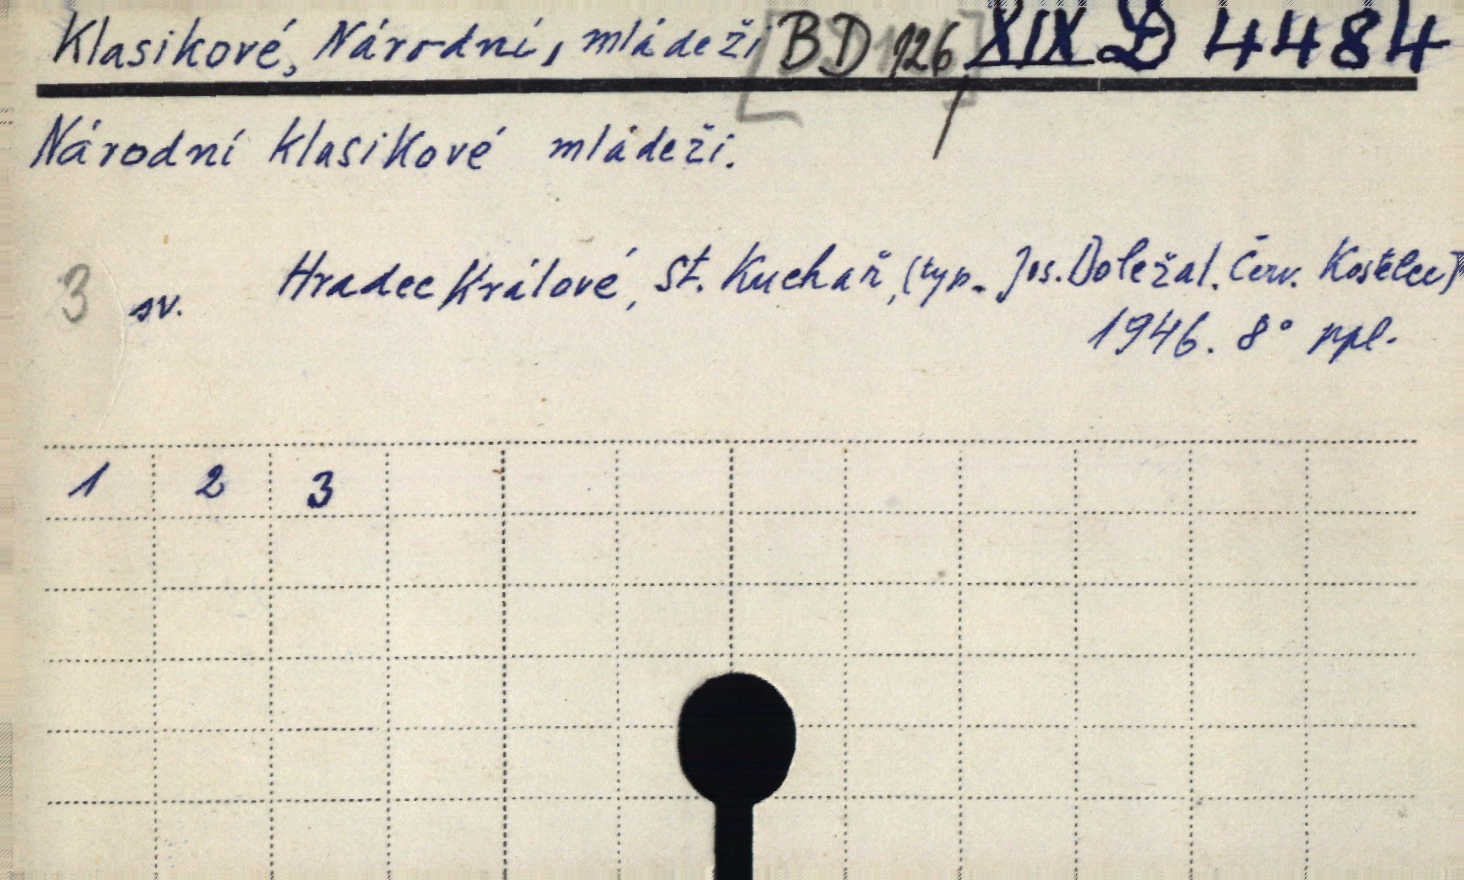 Klasikové, Národní, mládeži [BD 126] XIX D 4484
Národní klasikové mládeži.
3 sv. Hradec Králové, St. Kuchař, (typ. Jos. Doležal. Červ. Kostelec)
1946. 8° ppl.
1 2 3